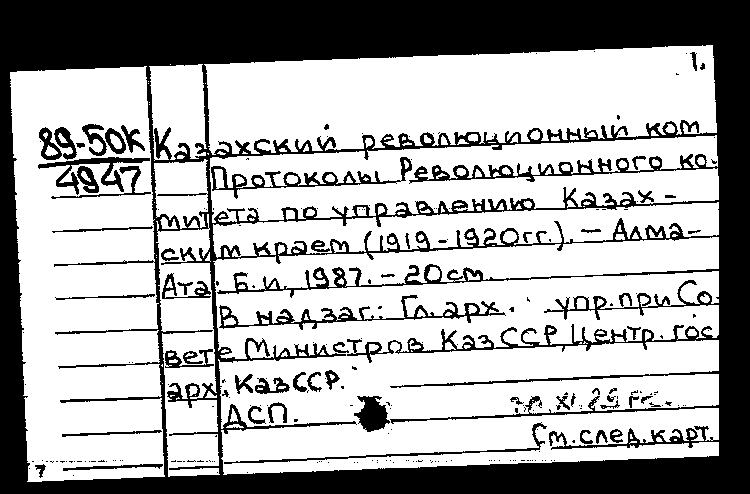 1.
89-50К
4947
Казахский революционный ком
Протоколы Революционного ко-
митета по управлению Казах-
ским краем (1919-1920гг.). - Алма-
Ата: Б.и., 1987. - 20см.
В надзаг.: Гл. арх. упр. при Со-
вете Министров КазССР, Центр. гос
арх. КазССР.
ДСП.
См. след. карт.
7